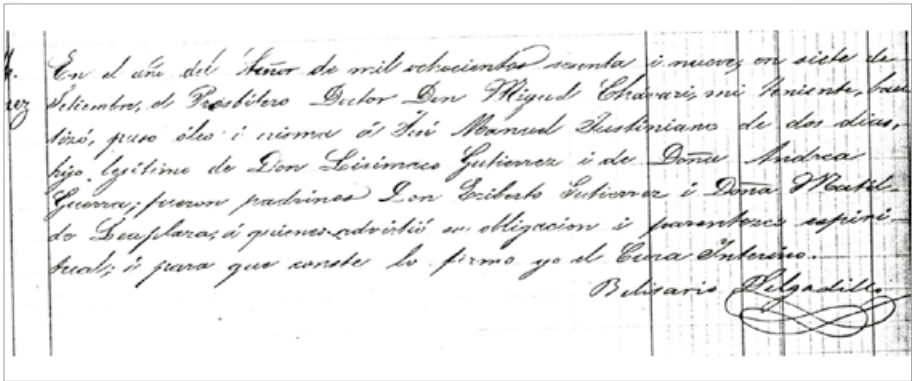 En el año del Señor de mil ochocientos sesenta i nueve, en siete de
Setiembre, el Presbítero Doctor Don Miguel Chavari, mi teniente, bau
tizó, puso óleo i crisma á José Manuel Justiniano de dos dias,
hijo lejítimo de Don Lisimaco Gutierrez i de Doña Andrea
Guerra; fueron padrinos Don Eriberto Gutierrez i Doña Matil-
de a quienes advirtió su obligacion i parentezco espiri-
tual; i para que conste lo firmo yo el Cura Interino.
Belisario Delgadillo